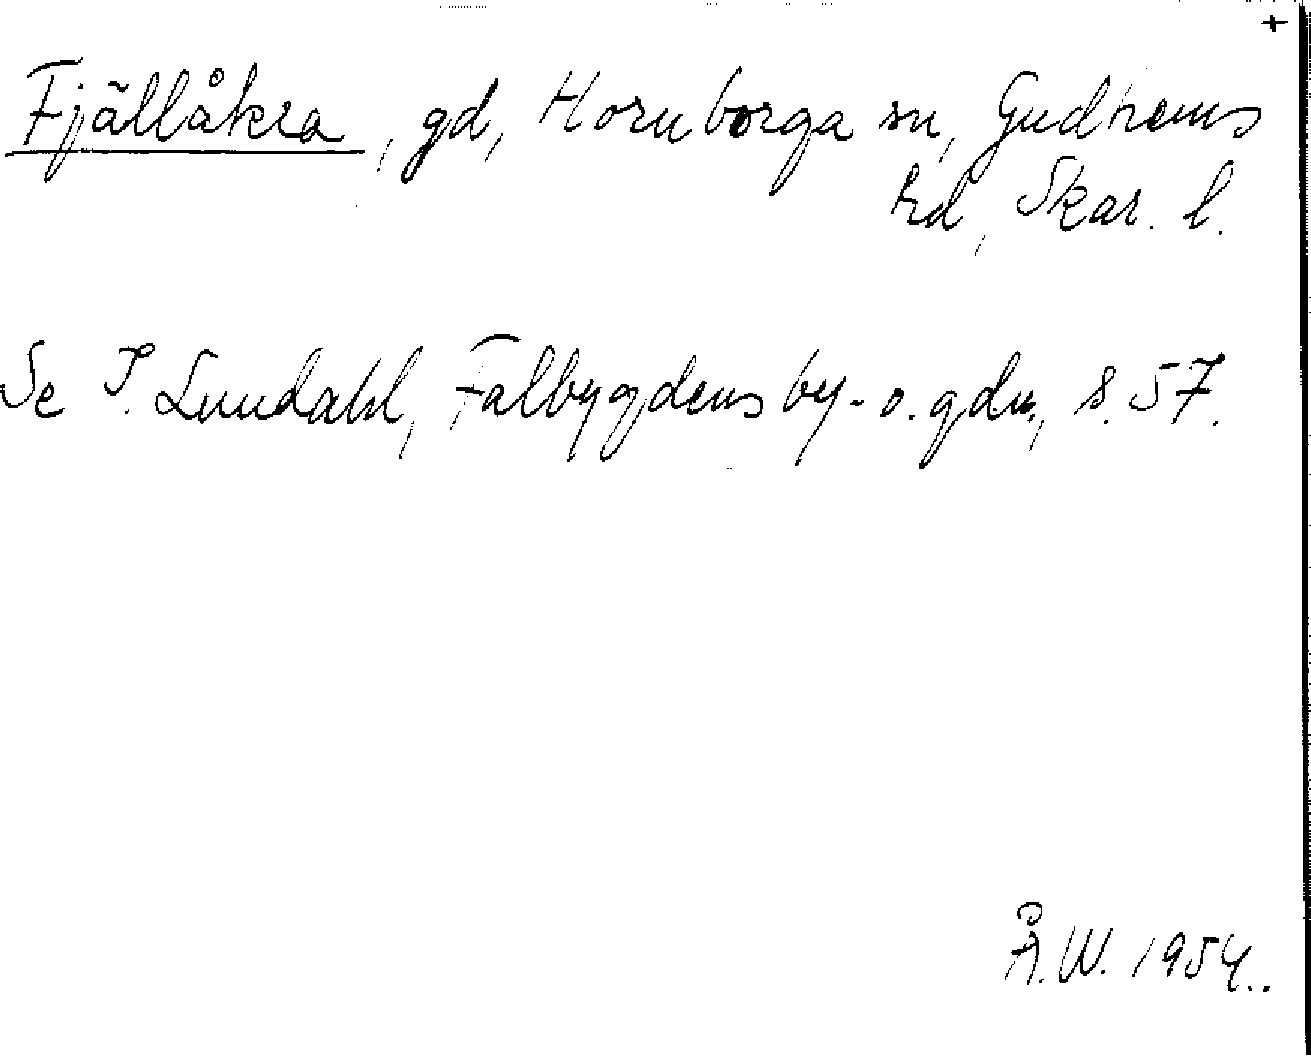 +
Fjällåkra, gd, Hornborga sn, Gudhems
hd, Skar. l.
Se I. Lundahl, Falbygdens by- o. gdn, s. 57.
Å.W. 1954..